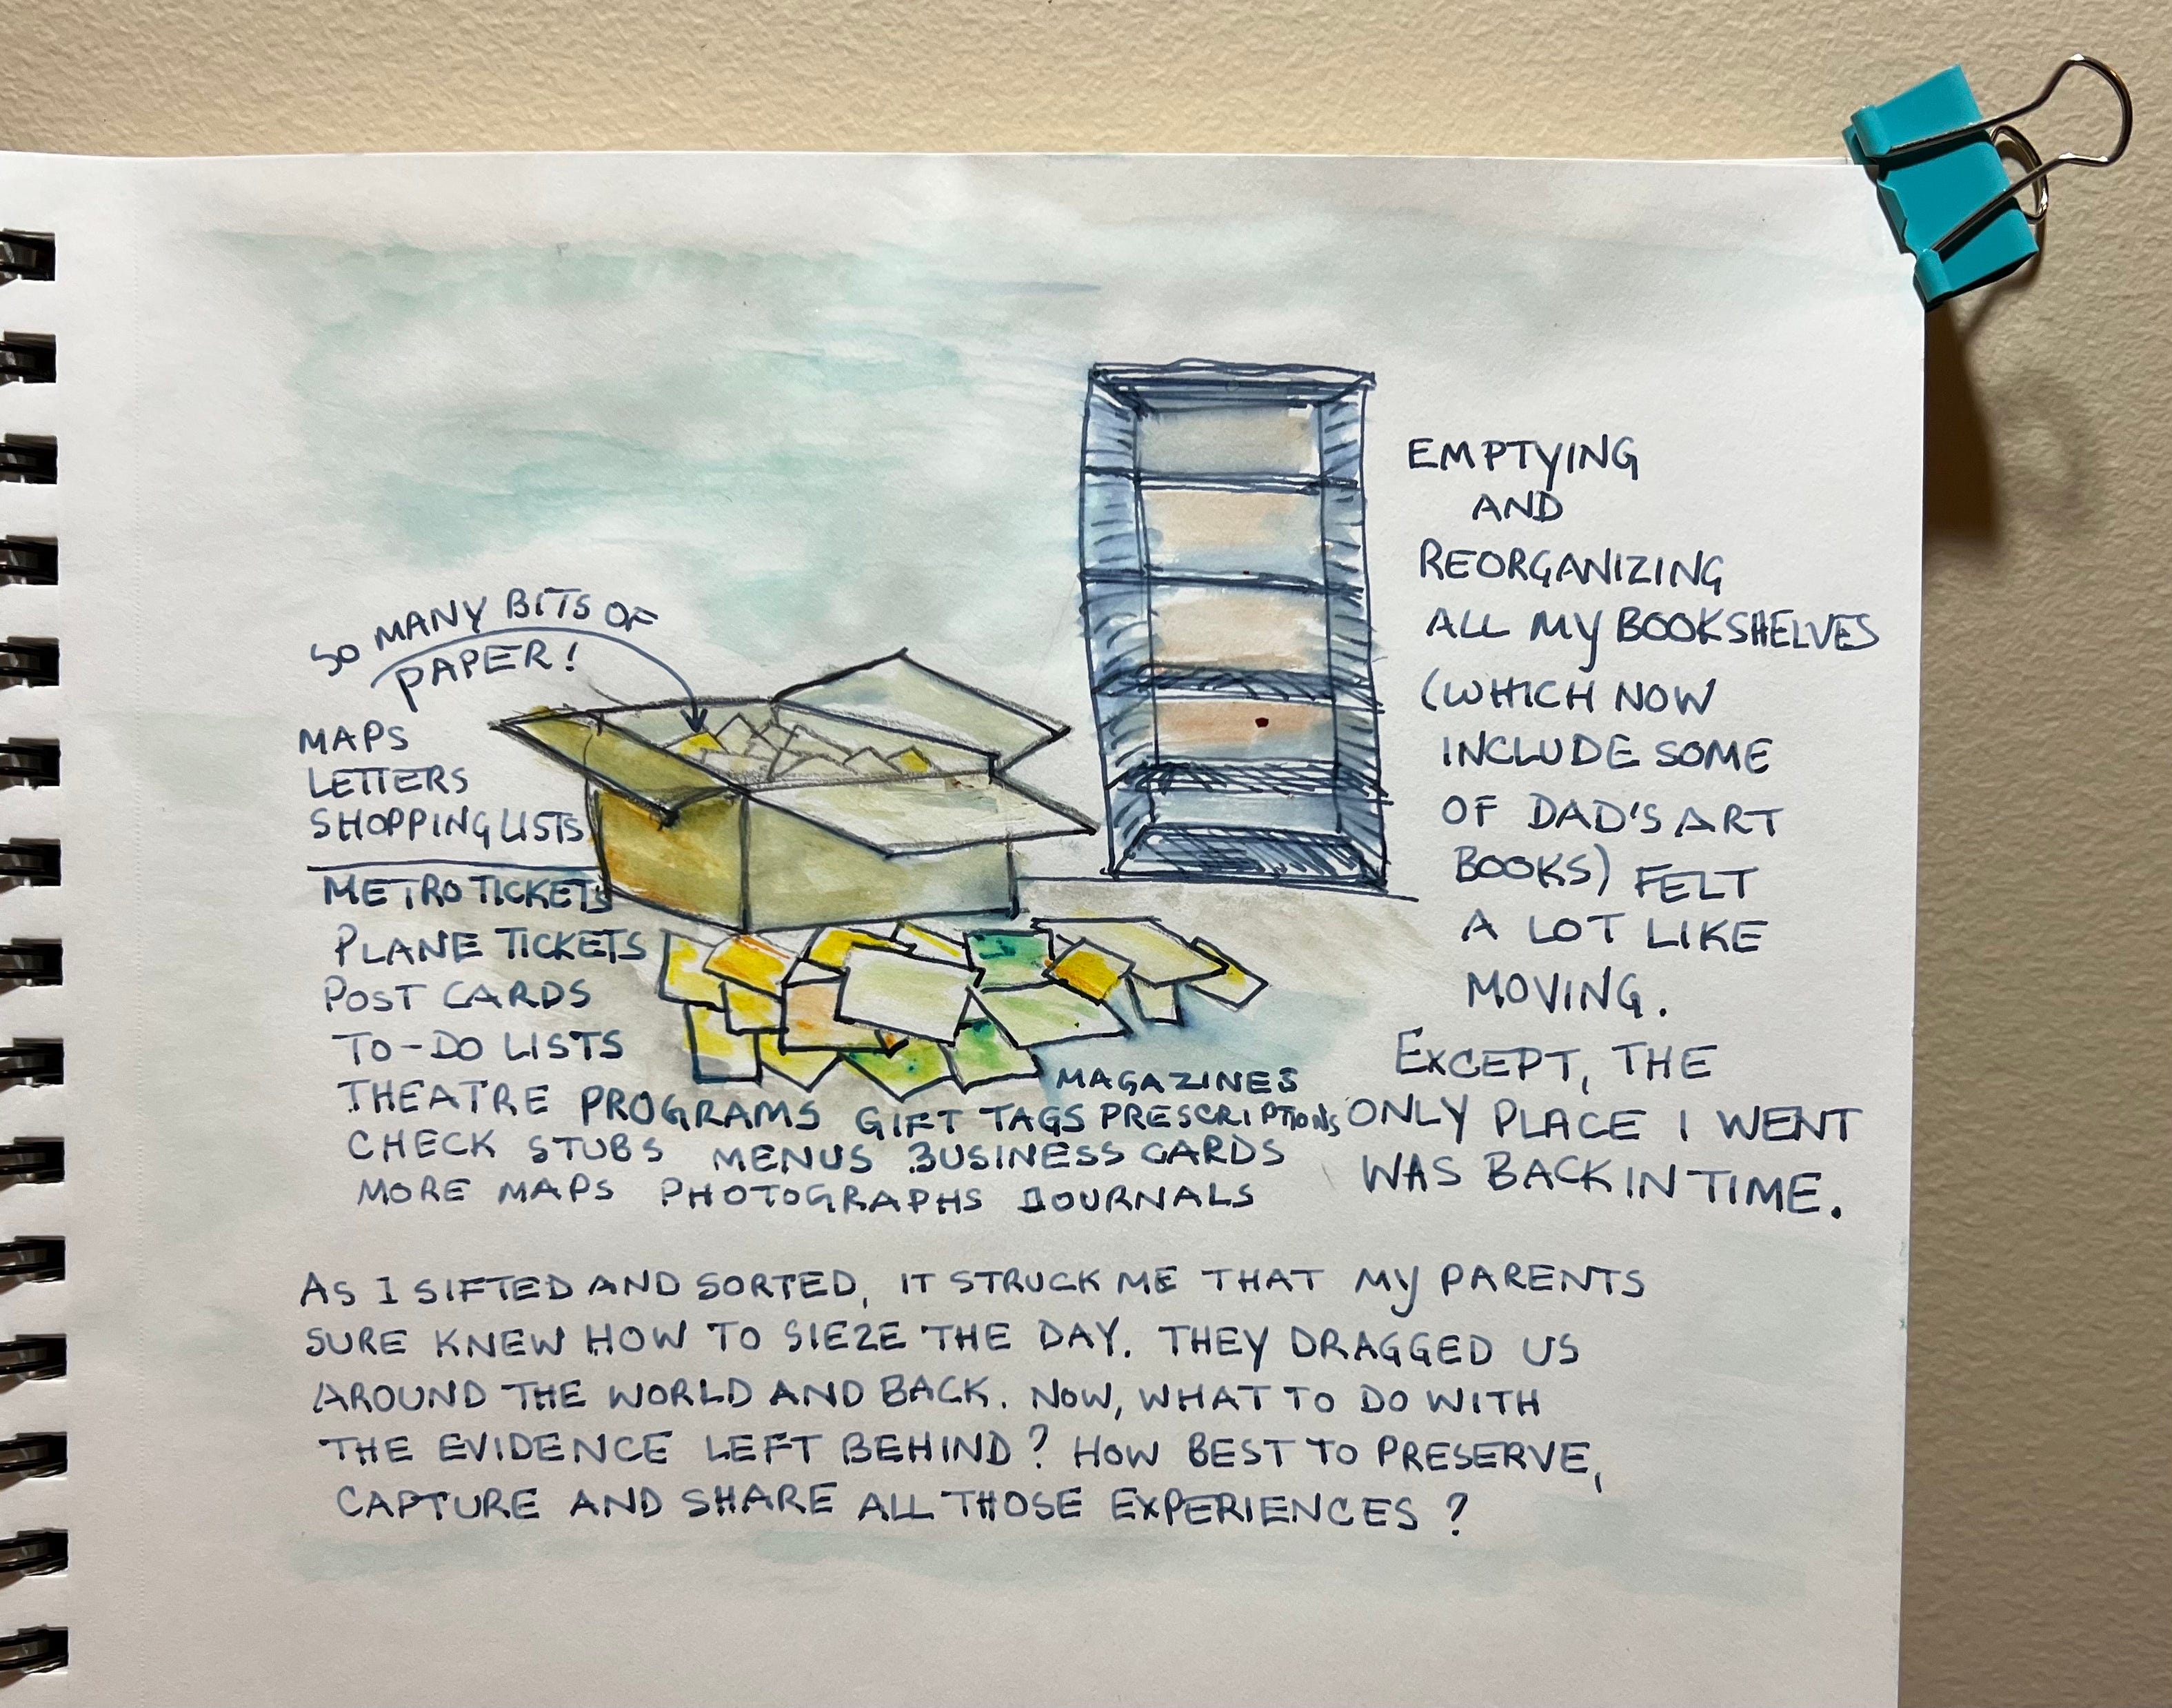 SO MANY BITS OF
PAPER!
MAPS
LETTERS
SHOPPING LISTS
METRO TICKETS
PLANE TICKETS
POST CARDS
TO-DO LISTS
MAGAZINES
THEATRE PROGRAMS GIFT TAGS PRESCRIPTIONS
CHECK STUBS MENUS BUSINESS CARDS
MORE MAPS PHOTOGRAPHS JOURNALS
EMPTYING
AND
REORGANIZING
ALL MY BOOKSHELVES
(WHICH NOW
INCLUDE SOME
OF DAD'S ART
BOOKS) FELT
A LOT LIKE
MOVING.
EXCEPT, THE
ONLY PLACE I WENT
WAS BACK IN TIME.
AS I SIFTED AND SORTED, IT STRUCK ME THAT MY PARENTS
SURE KNEW HOW TO SIEZE THE DAY. THEY DRAGGED US
AROUND THE WORLD AND BACK. NOW, WHAT TO DO WITH
THE EVIDENCE LEFT BEHIND? HOW BEST TO PRESERVE,
CAPTURE AND SHARE ALL THOSE EXPERIENCES?